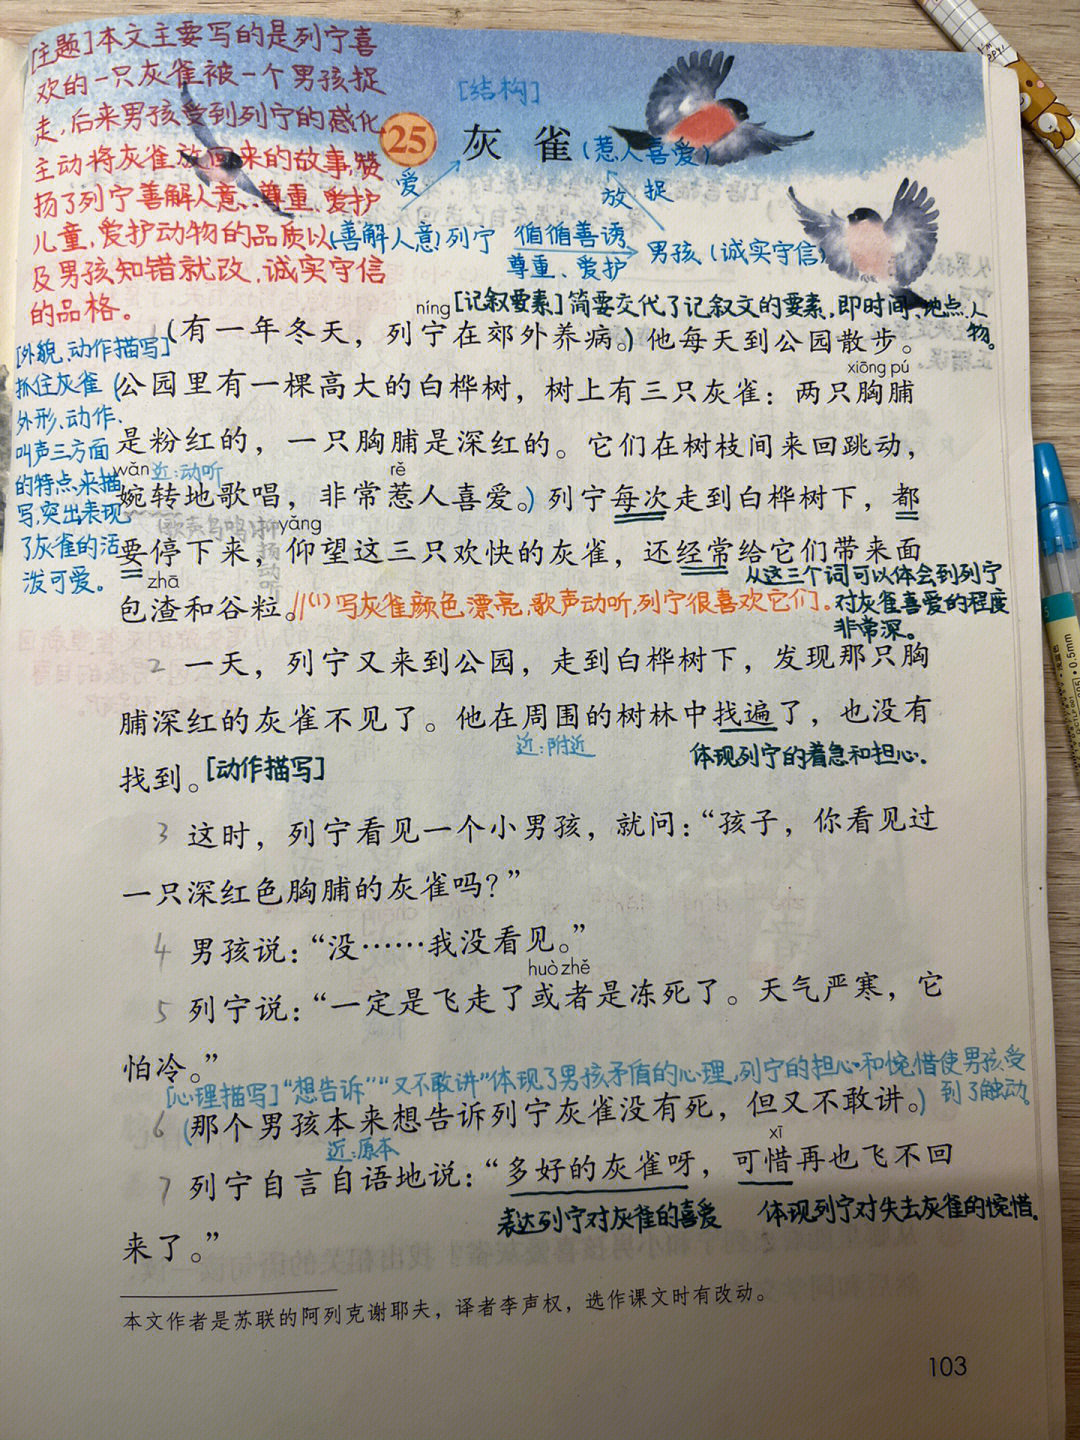 [主题]本文主要写的是列宁喜
欢的一只灰雀被一个男孩捉
走,后来男孩受到列宁的感化
主动将灰雀放回来的故事,赞
扬了列宁善解人意、尊重、爱护
儿童,爱护动物的品质以
及男孩知错就改、诚实守信
的品格。
[结构]
25 灰雀(惹人喜爱)
爱
放 捉
(善解人意)列宁 循循善诱 男孩(诚实守信)
尊重、爱护
[记叙要素]简要交代了记叙文的要素,即时间、地点、人
物。
níng
1 (有一年冬天，列宁在郊外养病。)他每天到公园散步。
xiōng pú
[外貌、动作描写]
抓住灰雀
外形、动作、
叫声三方面
的特点来描
写,突出表现
了灰雀的活
泼可爱。
(公园里有一棵高大的白桦树，树上有三只灰雀：两只胸脯
是粉红的，一只胸脯是深红的。它们在树枝间来回跳动，
wǎn 近:动听 rě
婉转地歌唱，非常惹人喜爱。)列宁每次走到白桦树下，都
yǎng
要停下来，仰望这三只欢快的灰雀，还经常给它们带来面
zhā
从这三个词可以体会到列宁
对灰雀喜爱的程度
非常深。
包渣和谷粒。//(1)写灰雀颜色漂亮,歌声动听,列宁很喜欢它们。
2 一天，列宁又来到公园，走到白桦树下，发现那只胸
脯深红的灰雀不见了。他在周围的树林中找遍了，也没有
近:附近
体现列宁的着急和担心.
找到。[动作描写]
3 这时，列宁看见一个小男孩，就问：“孩子，你看见过
一只深红色胸脯的灰雀吗？”
4 男孩说：“没……我没看见。”
huò zhě
5 列宁说：“一定是飞走了或者是冻死了。天气严寒，它
怕冷。”
[心理描写]“想告诉”“又不敢讲”体现了男孩矛盾的心理,列宁的担心和惋惜使男孩受
到了触动。
6 (那个男孩本来想告诉列宁灰雀没有死，但又不敢讲。)
近:原本
xī
7 列宁自言自语地说：“多好的灰雀呀，可惜再也飞不回
表达列宁对灰雀的喜爱
体现列宁对失去灰雀的惋惜。
来了。”
本文作者是苏联的阿列克谢耶夫，译者李声权，选作课文时有改动。
103
0.5mm